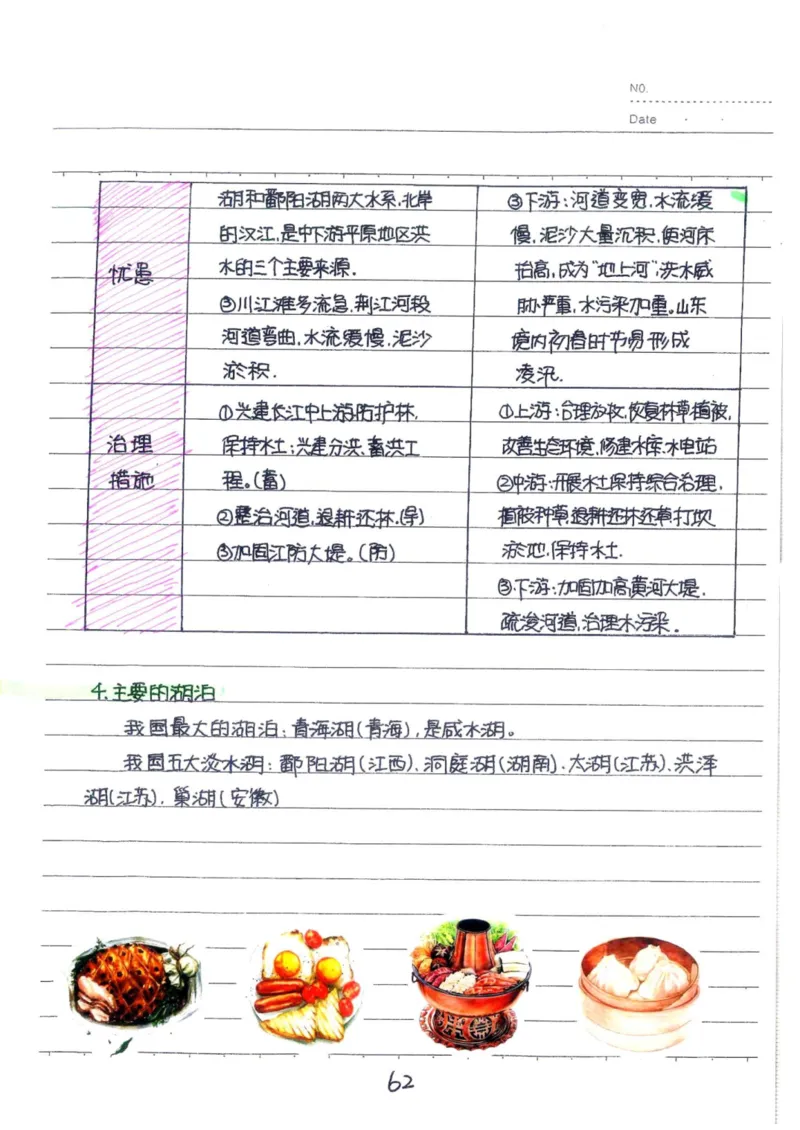 NO.
Date
忧患
湖和鄱阳湖两大水系,北岸
的汉江,是中下游平原地区洪
水的三个主要来源.
③川江滩多流急,荆江河段
河道弯曲,水流缓慢,泥沙
淤积.
③下游:河道变宽,水流缓
慢,泥沙大量沉积,使河床
抬高,成为“地上河”;洪水威
胁严重,水污染加重。山东
境内初春时节易形成
凌汛.
治理
措施
①兴建长江中上游防护林,
保持水土;兴建分洪、蓄洪工
程。(蓄)
②整治河道,退耕还林.(导)
③加固江防大堤。(防)
①上游:合理放牧,恢复林草植被,
改善生态环境,修建水库、水电站
②中游:开展水土保持综合治理,
植被种草,退耕还林还草,打坝
淤地,保持水土.
③下游:加固加高黄河大堤.
疏浚河道,治理水污染。
4.主要的湖泊
我国最大的湖泊:青海湖(青海),是咸水湖。
我国五大淡水湖:鄱阳湖(江西)、洞庭湖(湖南)、太湖(江苏)、洪泽
湖(江苏)、巢湖(安徽)
62